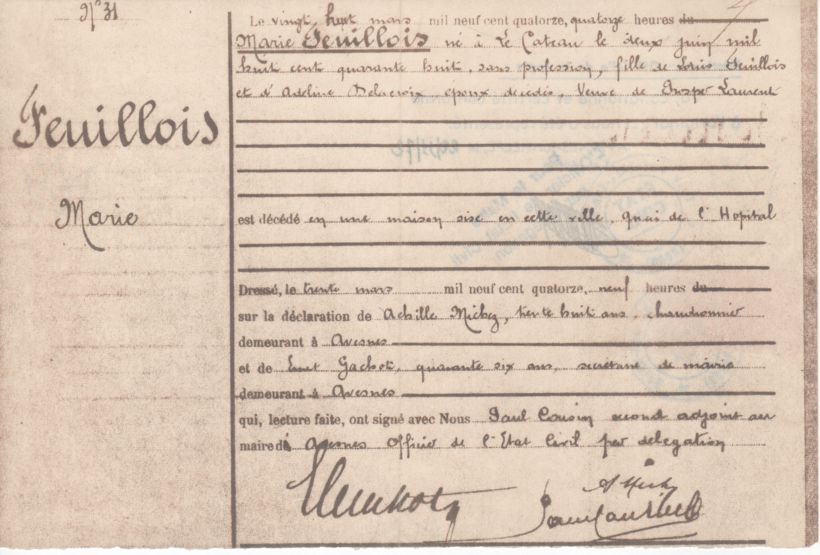 N° 31
Feuillois
Marie
Le vingt huit mars mil neuf cent quatorze, quatorze heures du
Marie Feuillois né à Le Cateau le deux juin mil
huit cent quarante huit, sans profession, fille de Louis Feuillois
et d'Adeline Delacroix époux décédés, Veuve de Prosper Laurent
est décédé en une maison sise en cette ville, quai de l'Hopital
Dressé, le trente mars mil neuf cent quatorze, neuf heures du
sur la déclaration de Achille Michez, trente huit ans, chaudronnier
demeurant à Avesnes
et de Gachot, quarante six ans, secrétaire de mairie
demeurant à Avesnes
qui, lecture faite, ont signé avec Nous Paul Cousin second adjoint au
maire d'Avesnes Officier de l'Etat Civil par délégation